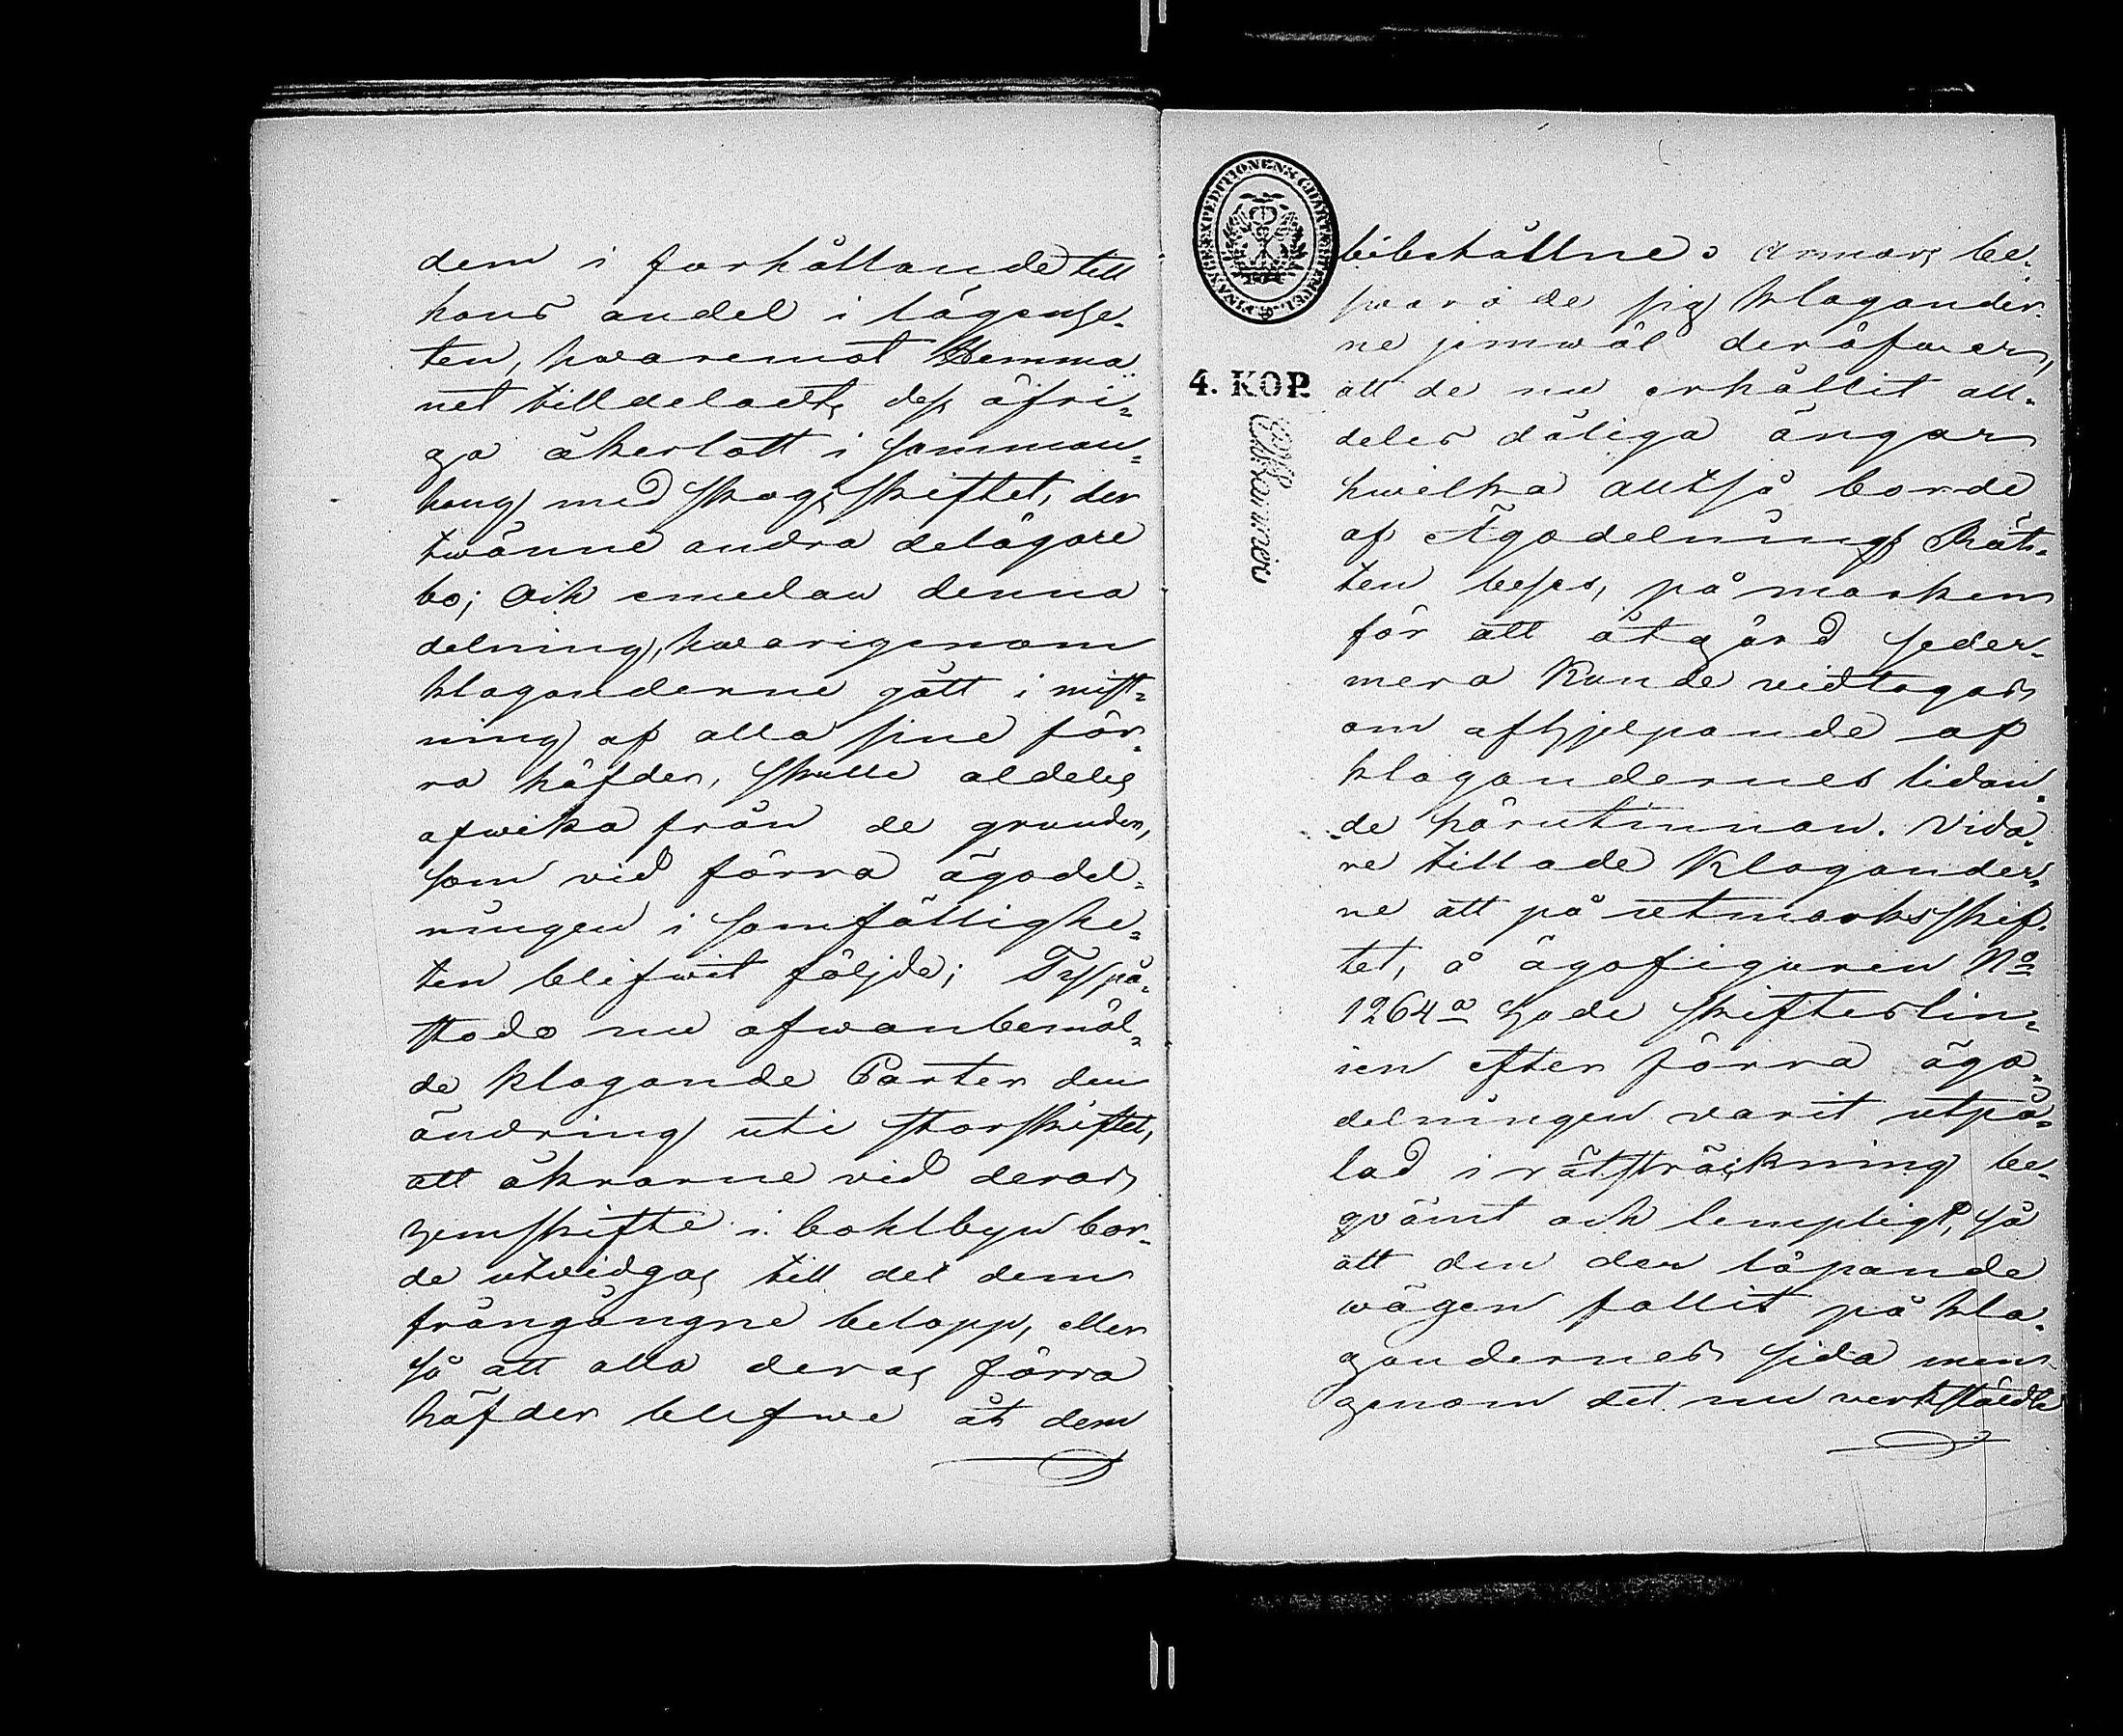 dem i förhållande till
hans andel i lägenhe-
ten, hwaremot Hemma-
net tilldelats dess öfri-
ga åkerlott i samman-
hang med skogsskiftet, der
twänne andra delägare
bo; och emedan denna
delning, hwarigenom
klaganderne gått i mist-
ning af alla sine för-
ra häfder, skulle aldeles
afwika från de grunder,
som vid förra ägodel-
ningen i samfällighe-
ten blifwit följde; Ty på-
stodo nu ofwanbemäl-
de klagande Parter den
ändring uti storskiftet,
att åkrarne vid deras
hemskifte i bohlbyn bor-
de utvidgas till det dem
frångångne belopp, eller
så att alla deras förra
häfder blefwe åt dem
FINANCE EXPEDITIONENS CHARTÆ STEMPEL
4. KOP.
bibehållne. Annars be-
swärade sig klagander-
ne jemwäl deröfwer,
att de nu erhållit all-
deles dåliga ängar
hwilka alltså borde
af Ägodelnings Rät-
ten beses, på marken
för att åtgärd seder-
mera kunde vidtagas
om afhjelpande af
klagandernes lidan-
de härutinnan. Vida-
re tillade Klagander-
ne att på utmarksskif-
tet, å ägofiguren No
1264 a hade skifteslin-
ien efter förra ägo-
delningen varit utpå-
lad i rätsträckning be-
qvämt och lempligt, så
att den der löpande
wägen fallit på kla-
gandernes sida men
genom det nu verkstäldte